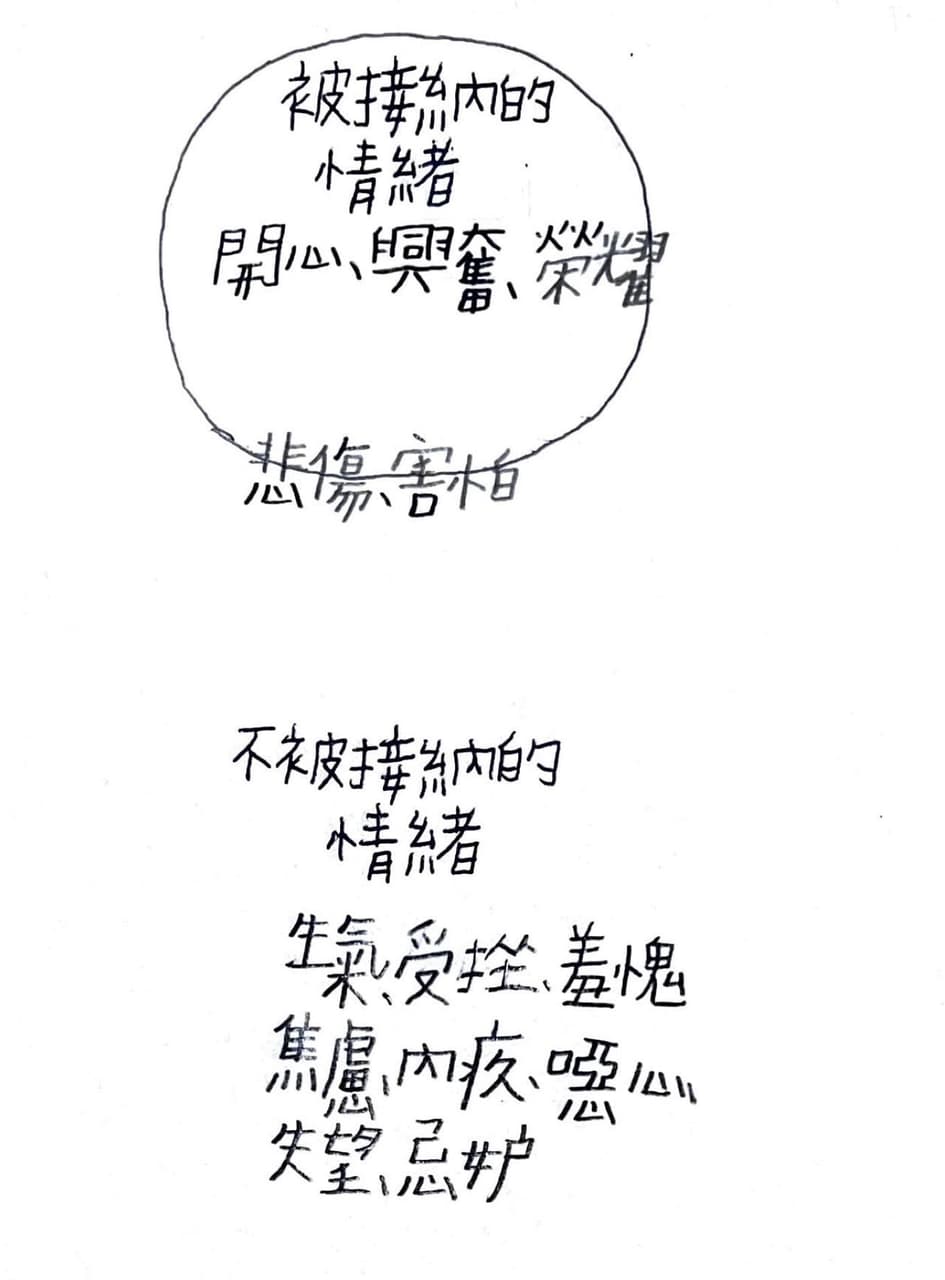 被接納的
情緒
開心、興奮、榮耀
悲傷、害怕
不被接納的
情緒
生氣、受挫、羞愧
焦慮、內疚、噁心
失望、忌妒